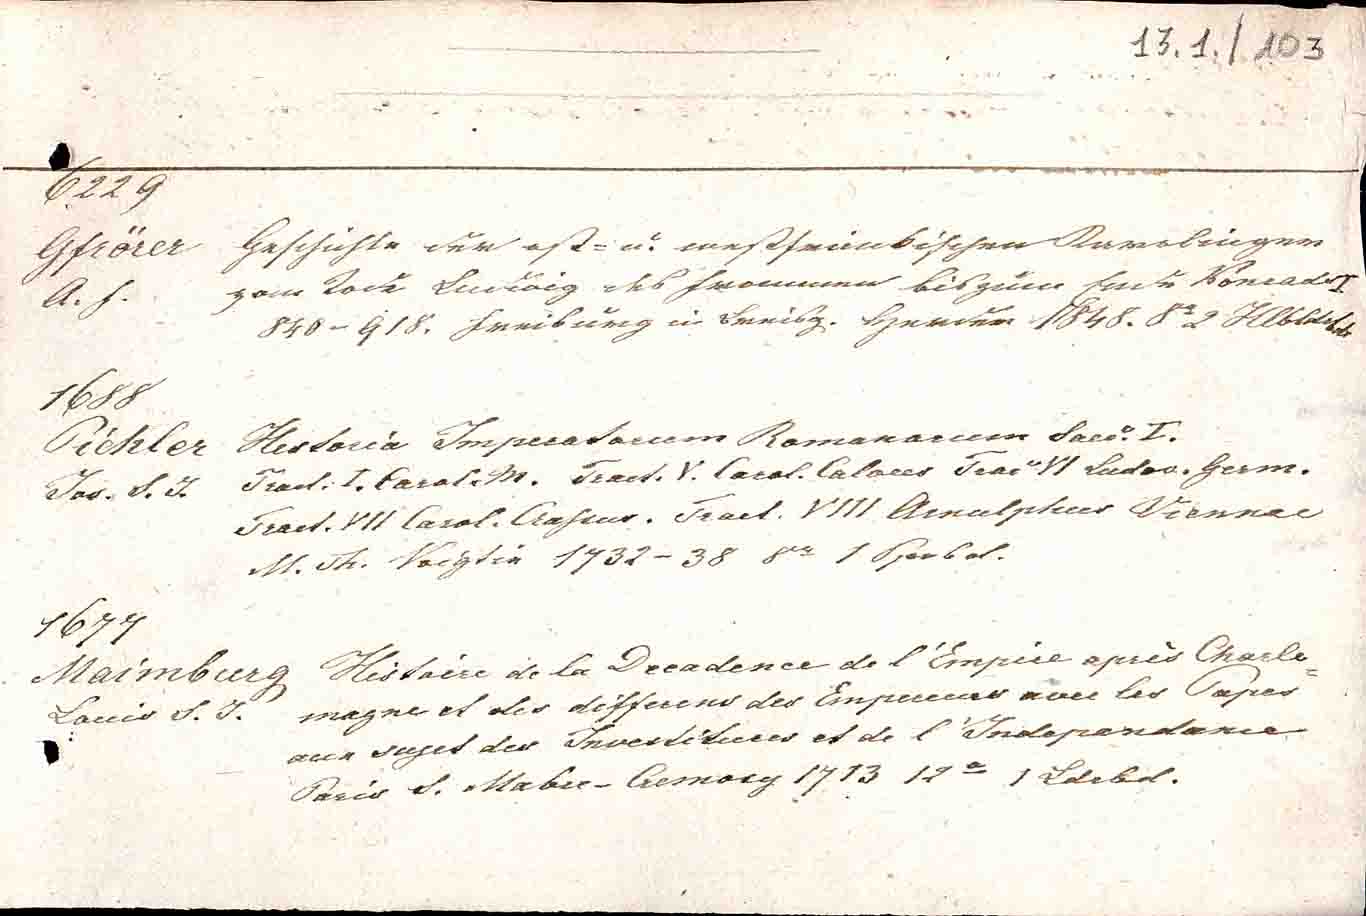 13.1./103
6229
Gfrörer Geschichte der ost- u. westfränkischen Karolinger
A. F. vom Tode Ludwig des Frommen bis zum Ende Konrads I
840-918. Freiburg i. Breisg. Herder 1848. 8° 2 Hlbldrbde
1688
Pichler Historia Imperatorum Romanorum Saec. I.
Jos. S. J. Tract. I. Carol. M. Tract. V. Carol. Calvus Trac. VI Ludov. Germ.
Tract. VII Carol. Crassus. Tract. VIII Arnulphus Viennae
M. Th. Voigtin 1732-38 8° 1
1677
Maimburg Histoire de la Decadence de l'Empire après Charle=
Louis S. J. magne et des differens des Empereurs avec les Papes
aux sujet des Investitures et de l'Independance
Paris S. Mabre-Cramosy 1713 12° 1 Ldrbd.